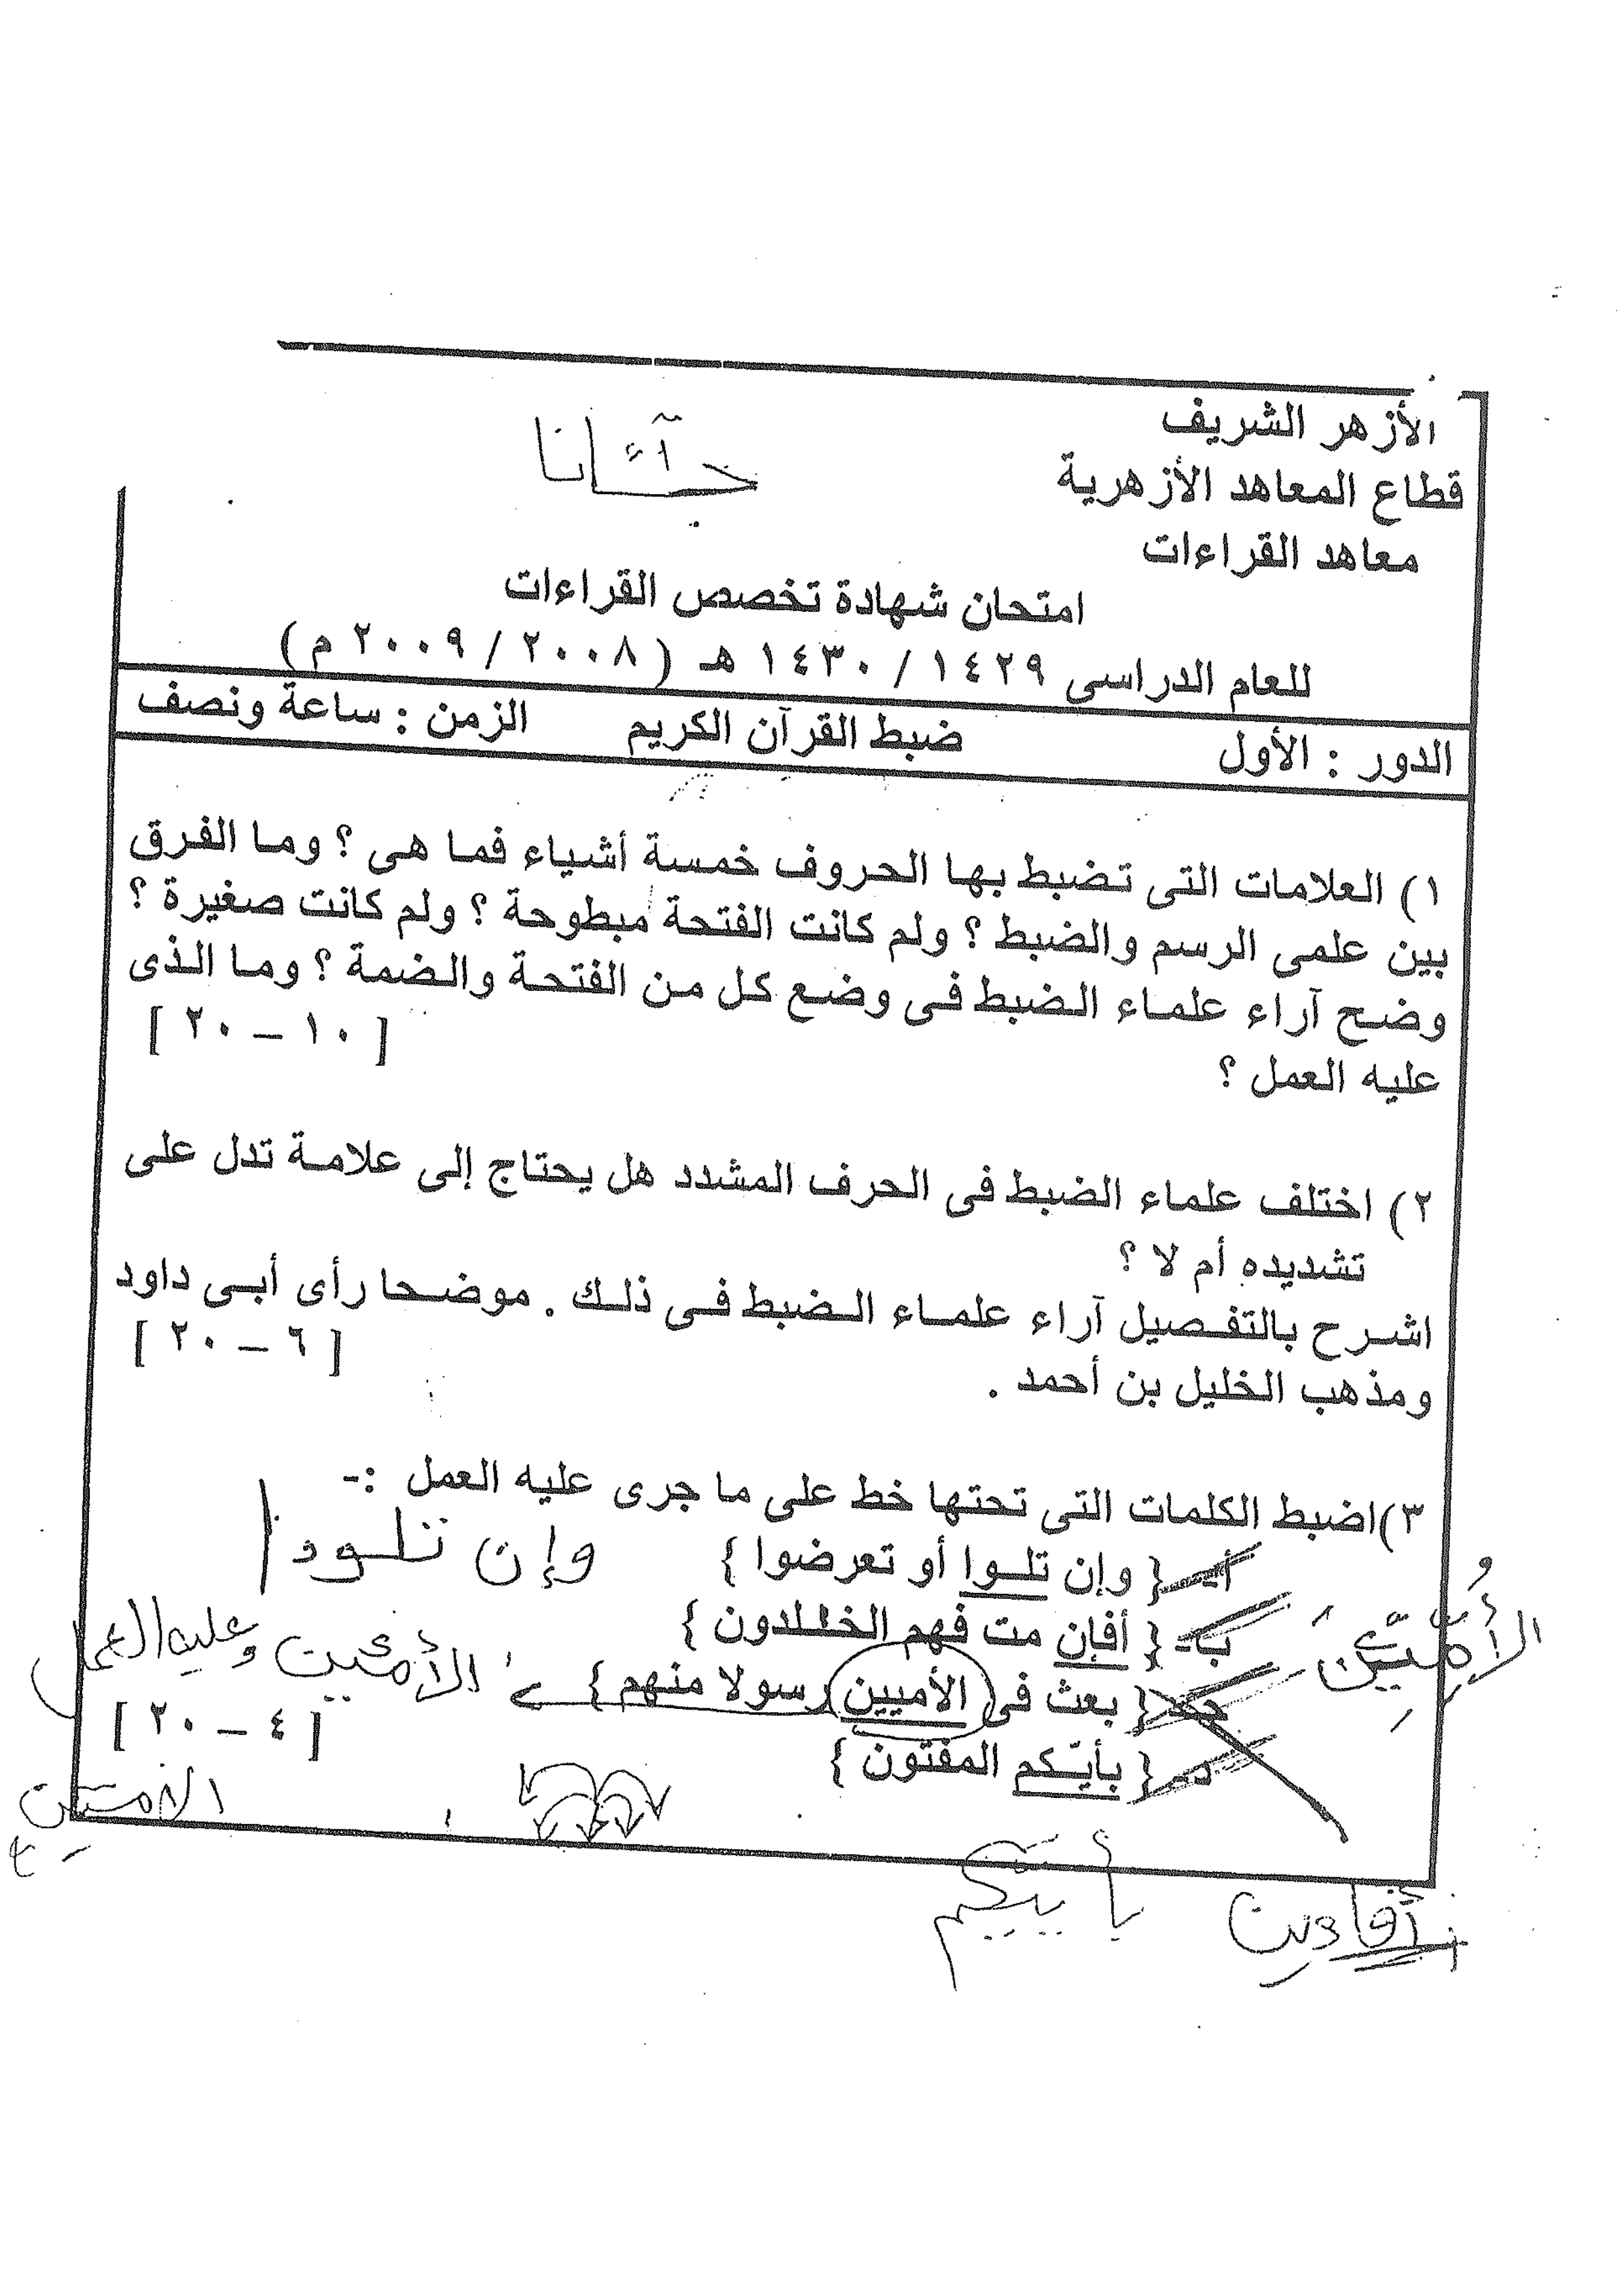 الأزهر الشريف
قطاع المعاهد الأزهرية
معاهد القراءات
امتحان شهادة تخصص القراءات
للعام الدراسى ١٤٢٩ / ١٤٣٠ هـ ( ٢٠٠٨ / ٢٠٠٩ م )
الدور : الأول ضبط القرآن الكريم الزمن : ساعة ونصف
١) العلامات التى تضبط بها الحروف خمسة أشياء فما هى ؟ وما الفرق
بين علمى الرسم والضبط ؟ ولم كانت الفتحة مبطوحة ؟ ولم كانت صغيرة ؟
وضح آراء علماء الضبط فى وضع كل من الفتحة والضمة ؟ وما الذى
عليه العمل ؟ [ ١٠ – ٢٠ ]
٢) اختلف علماء الضبط فى الحرف المشدد هل يحتاج إلى علامة تدل على
تشديده أم لا ؟
اشرح بالتفصيل آراء علماء الضبط فى ذلك . موضحا رأى أبى داود
ومذهب الخليل بن أحمد . [ ٦ – ٢٠ ]
٣) اضبط الكلمات التى تحتها خط على ما جرى عليه العمل :-
أ- { وإن تلوا أو تعرضوا } وإن
ب- { أفإن مت فهم الخلدون }
جـ- { بعث فى الأميين رسولا منهم } وعليه العمل
د- { بأييكم المفتون } [ ٤ – ٢٠ ]